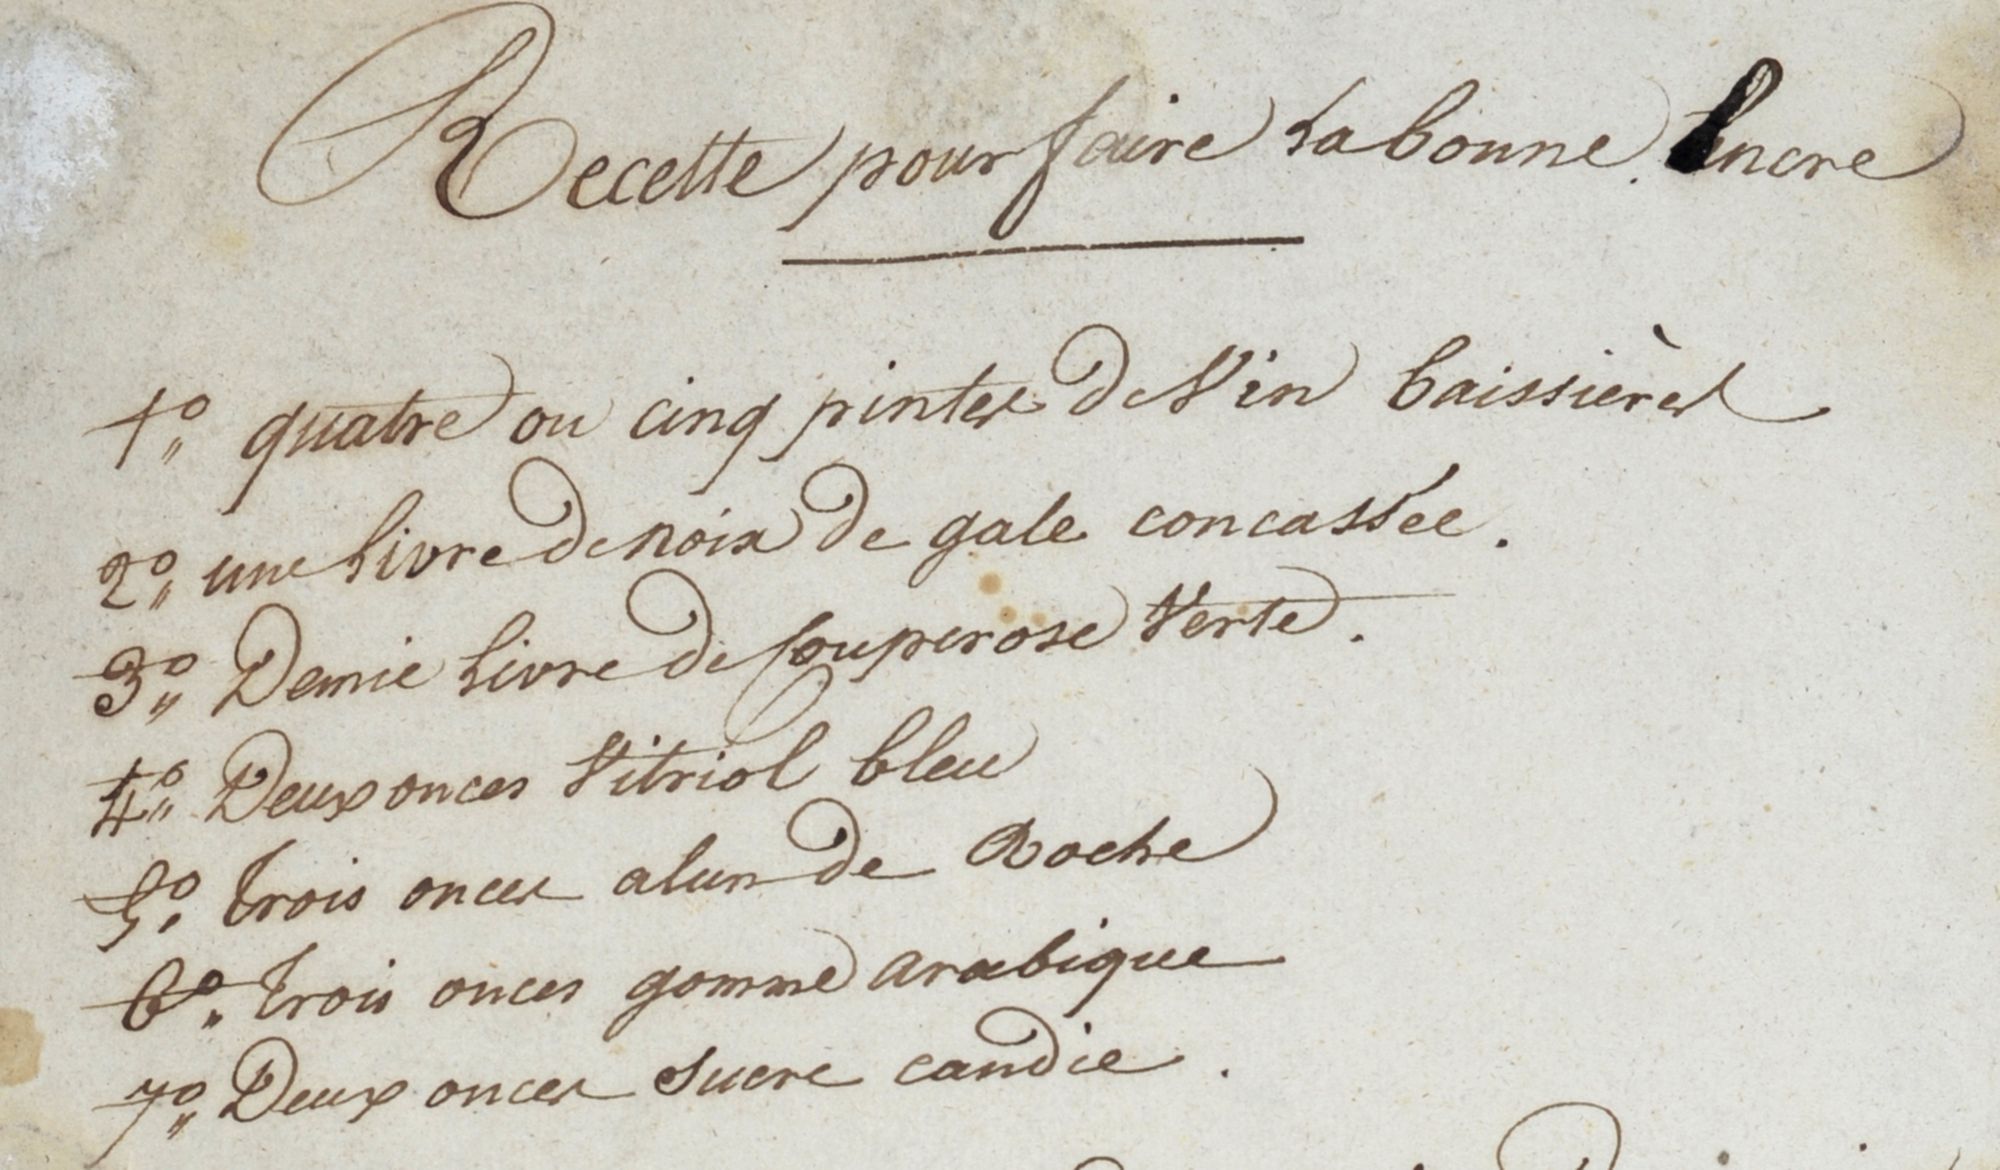 Recette pour faire La bonne Encre
1° quatre ou cinq pintes de Vin baissières
2° une Livre de noix de gale concassée.
3° Demie Livre de Couperose Verte.
4° Deux onces Vitriol bleu
5° trois onces alun de Roche
6° trois onces gomme arabique
7° Deux onces sucre candie.